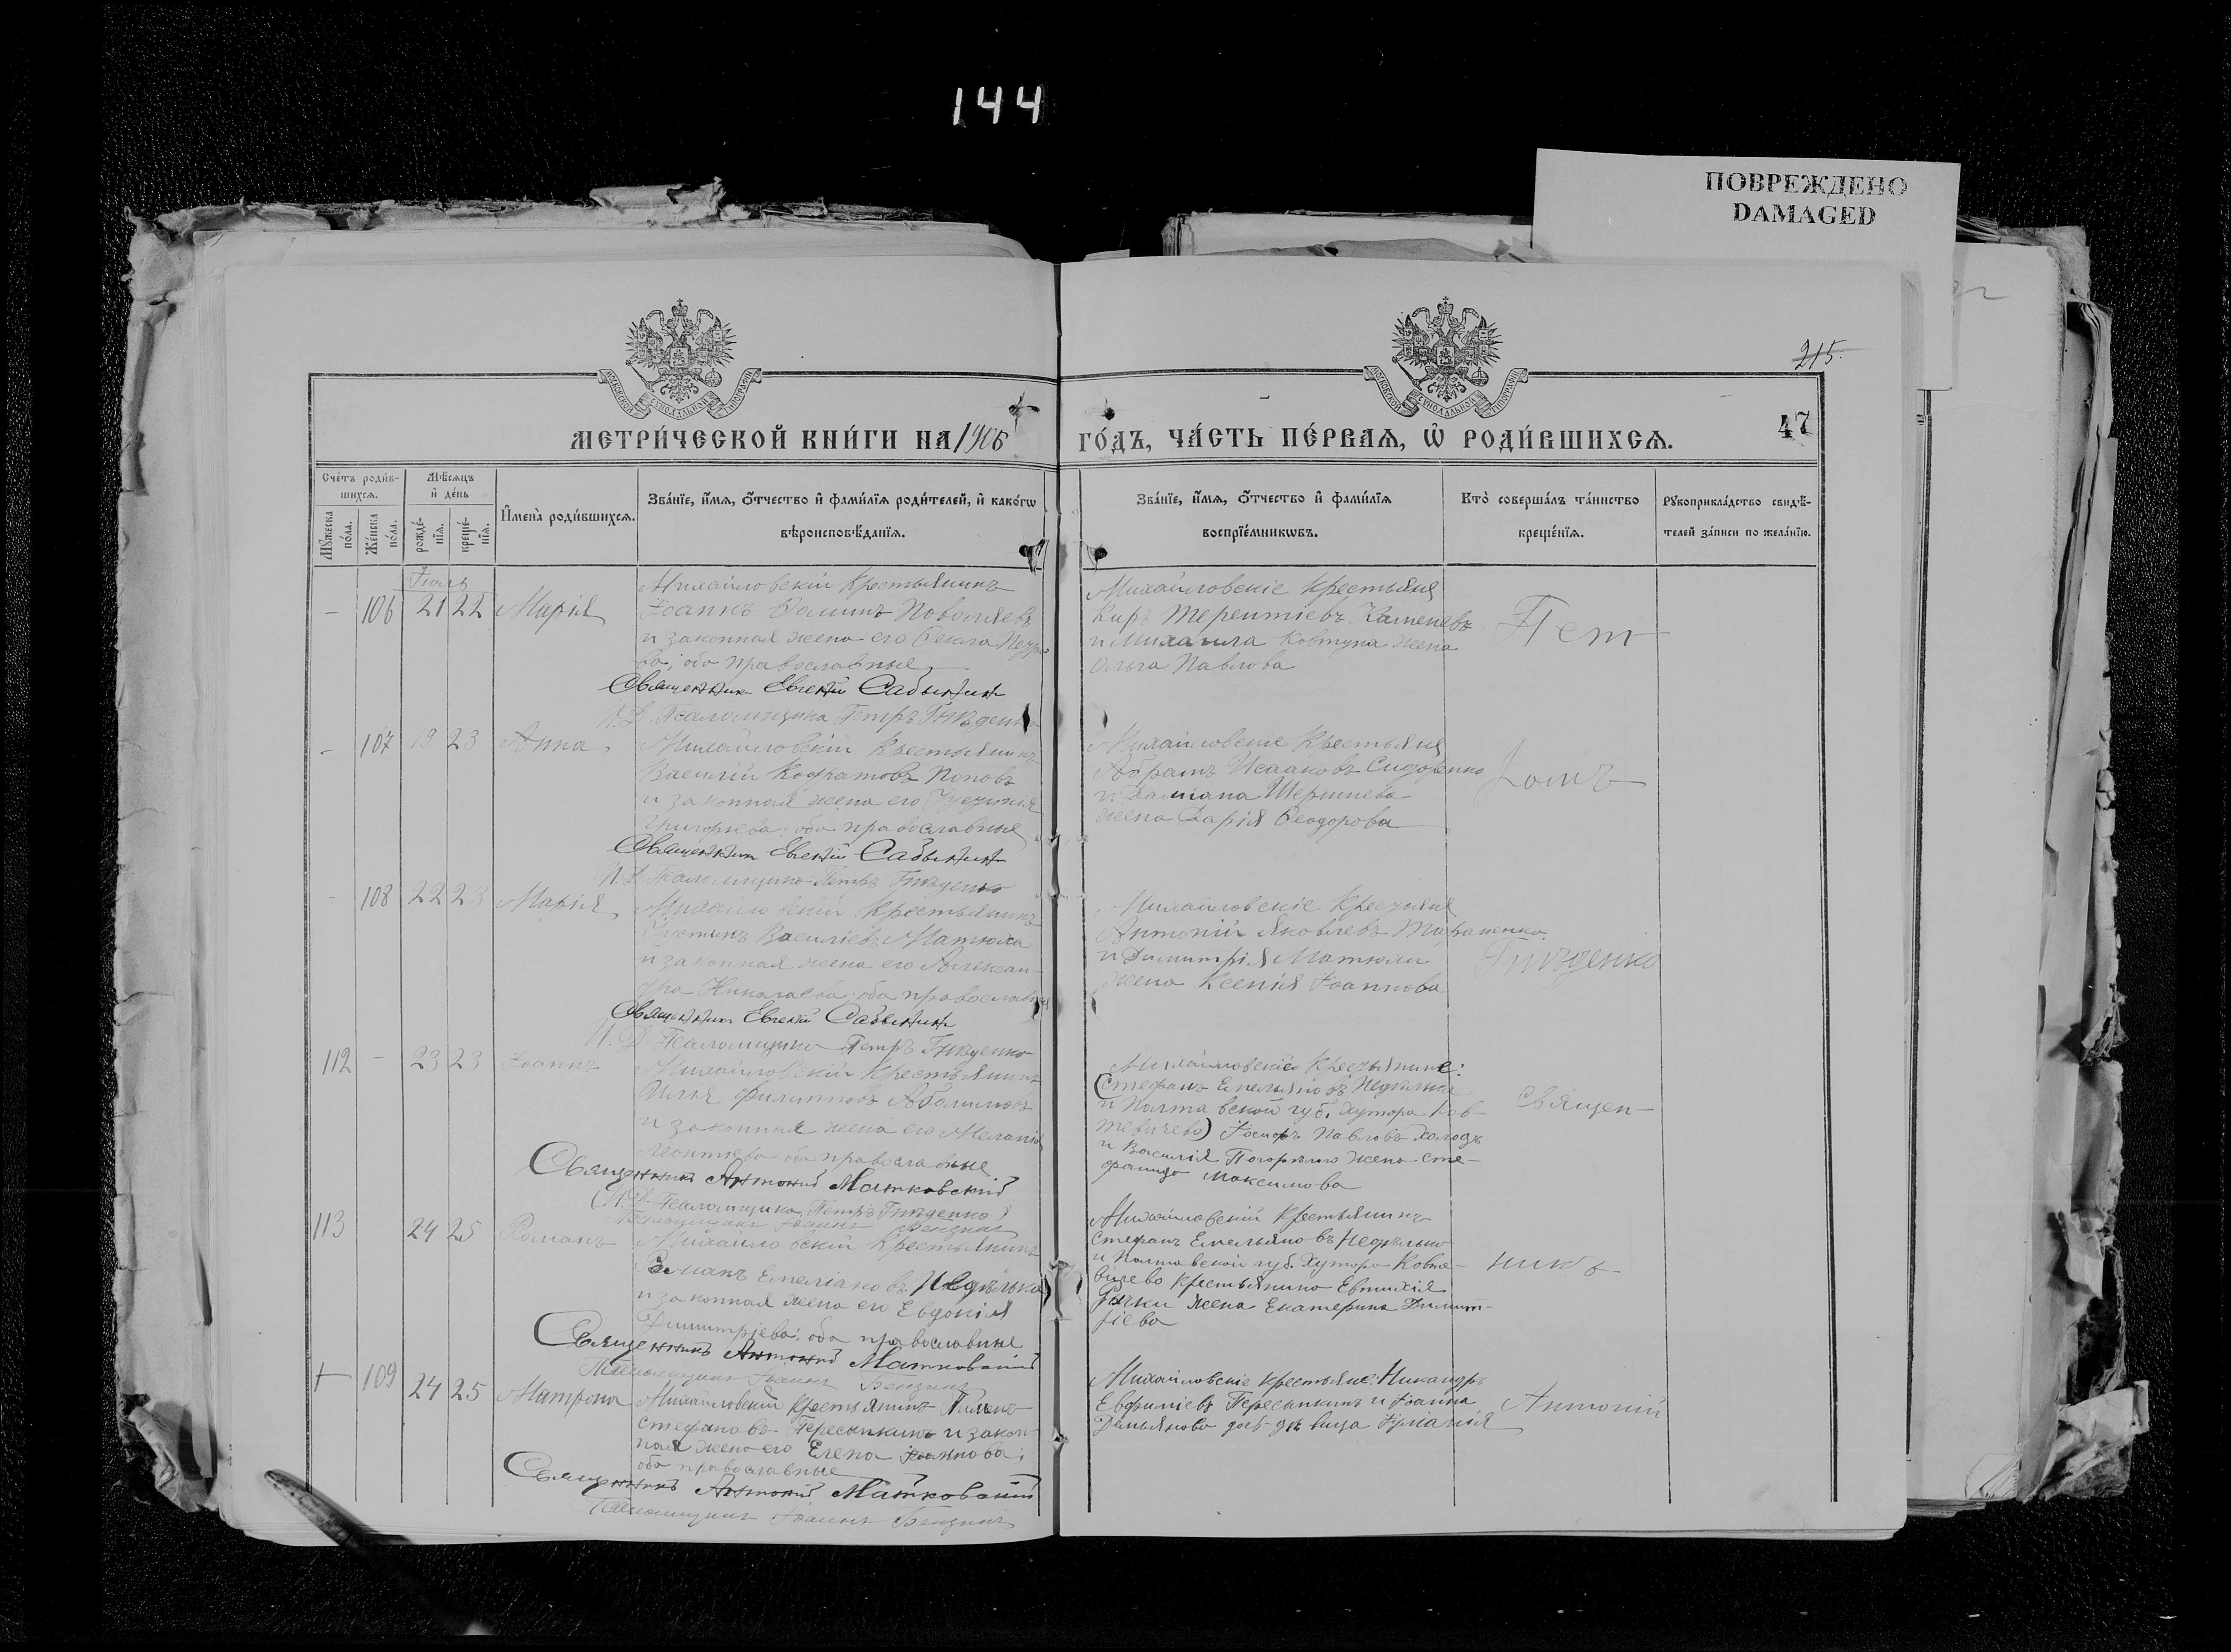 144
ПОВРЕЖДЕНО
DAMAGED
215.
47
МОСКОВСКОЙ СѴНОДАЛЬНОЙ ТИПОГРАФІИ
МОСКОВСКОЙ СѴНОДАЛЬНОЙ ТИПОГРАФІИ
МЕТРИ́ЧЕСКОЙ КНИ́ГИ НА 1906
ГО́ДЪ, ЧА́СТЬ ПЕ́РВАѦ, Ѡ҆ РОДИ́ВШИХСѦ.
Сче́тъ роди́в-
шихсѧ.
Мꙋ́жеска по́ла.
Же́нска по́ла.
Мѣ́сѧцъ
и҆ де́нь
рожде́-нїѧ.
креще́-нїѧ.
И҆мена̀ роди́вшихсѧ.
Зва́нїе, и҆́мѧ, ѻ҆́тчество и҆ фами́лїѧ роди́телей, и҆ како́гѡ
вѣроисповѣ́данїѧ.
Зва́нїе, и҆́мѧ, ѻ҆́тчество и҆ фами́лїѧ
воспрїе́мникѡвъ.
Кто̀ соверша́лъ та́инство
креще́нїѧ.
Рꙋкоприкла́дство свидѣ́-
телей за́писи по жела́нїю.
Іюль
– 106 21 22 Марія
Михайловскій крестьянинъ
Іоаннъ Ѳоминъ Поволяевъ
и законная жена его Ѳекла Петро
ва; оба православные
Священник Евгений Сабынин
И. Д. Псаломщика Петръ Гнѣденко
Михайловскіе крестьяне
Киръ Терентіевъ Каменевъ
и Михаила Ковтуна жена
Ольга Павлова
Пет
– 107 19 23 Анна
Михайловскій крестьянинъ
Василій Кодратовъ Поповъ
и законная жена его
Григорьева; оба православные
Священник Евгений Сабынин
И. Д. Псаломщика Петръ Гнѣденко
Михайловскіе крестьяне
Абрамъ Исааковъ Сидоренко
и Даміана Шершнева
жена Дарія Ѳеодорова
– 108 22 23 Марія
Михайловскій крестьянинъ
Іустинъ Василіевъ Матюха
и законная жена его Алексан-
дра Николаева; оба православные
Священник Евгений Сабынин
И. Д. Псаломщика Петръ Гнѣденко
Михайловскіе крестьяне
Антоній Яковлевъ Тараненко
и Димитрія Матюхи
жена Ксенія Іоаннова
Гнѣденко
112 – 23 23 Іоаннъ
Михайловскій крестьянинъ
Илья Филипповъ Абалимовъ
и законная жена его Меланія
Леонтіева оба православные
Священникъ Антоній Матковскій
(И. Д. Псаломщика Петръ Гнѣденко)
Псаломщикъ Іоаннъ Бенгинъ
Михайловскіе крестьяне:
(Стефанъ Емельяновъ Недѣлька
и Полтавской губ. хутора Ков-
тевичево) Іосифъ Павловъ Холодъ
и Василія Погорѣлаго жена Сте-
фанида Максимова
Священ-
113 24 25 Романъ
Михайловскій крестьянинъ
Романъ Емеліановъ Недѣлька
и законная жена его Евдокія
Димитріева: оба православные
Священникъ Антоній Матковскій
Псаломщикъ Іоаннъ Бенгинъ
Михайловскій крестьянинъ
Стефанъ Емельяновъ Недѣлько
и Полтавской губ. хутора Ковте-
вичево крестьянина Евтихія
жена Екатерина Димит-
ріева
никъ
109 24 25 Матрона
Михайловскій крестьянинъ
Стефановъ Пересыпкинъ и закон-
ная жена его Елена Іоаннова;
оба православные
Священникъ Антоній Матковскій
Псаломщикъ Іоаннъ Бенгинъ
Михайловскіе крестьяне: Никандръ
Евфиміевъ Пересыпкинъ и Іоанна
Демьянова дочь-дѣвица
Антоній